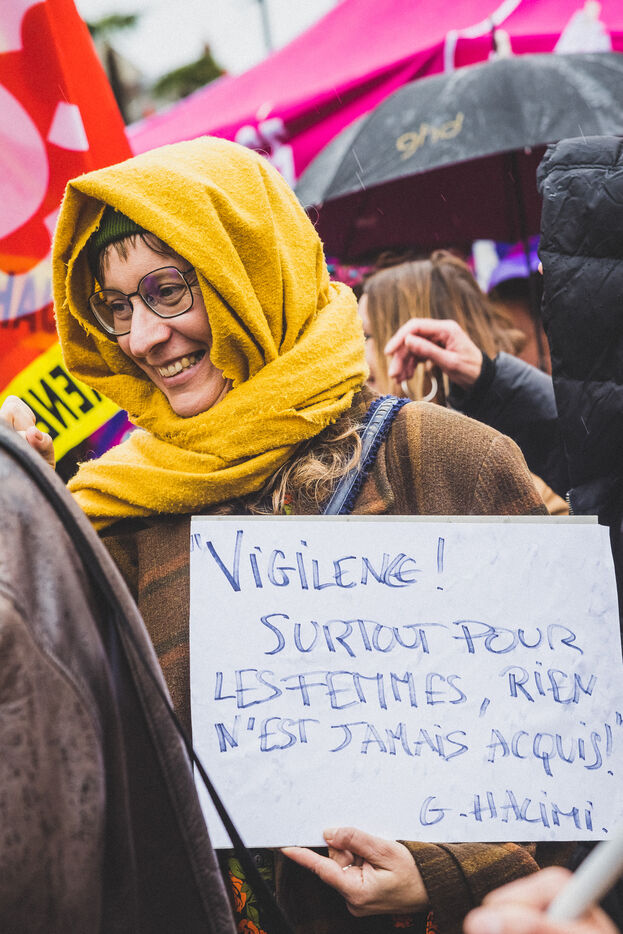 ghd
EN
"VIGILENCE!
SURTOUT POUR
LES FEMMES, RIEN
N'EST JAMAIS ACQUIS!"
G. HALIMI.